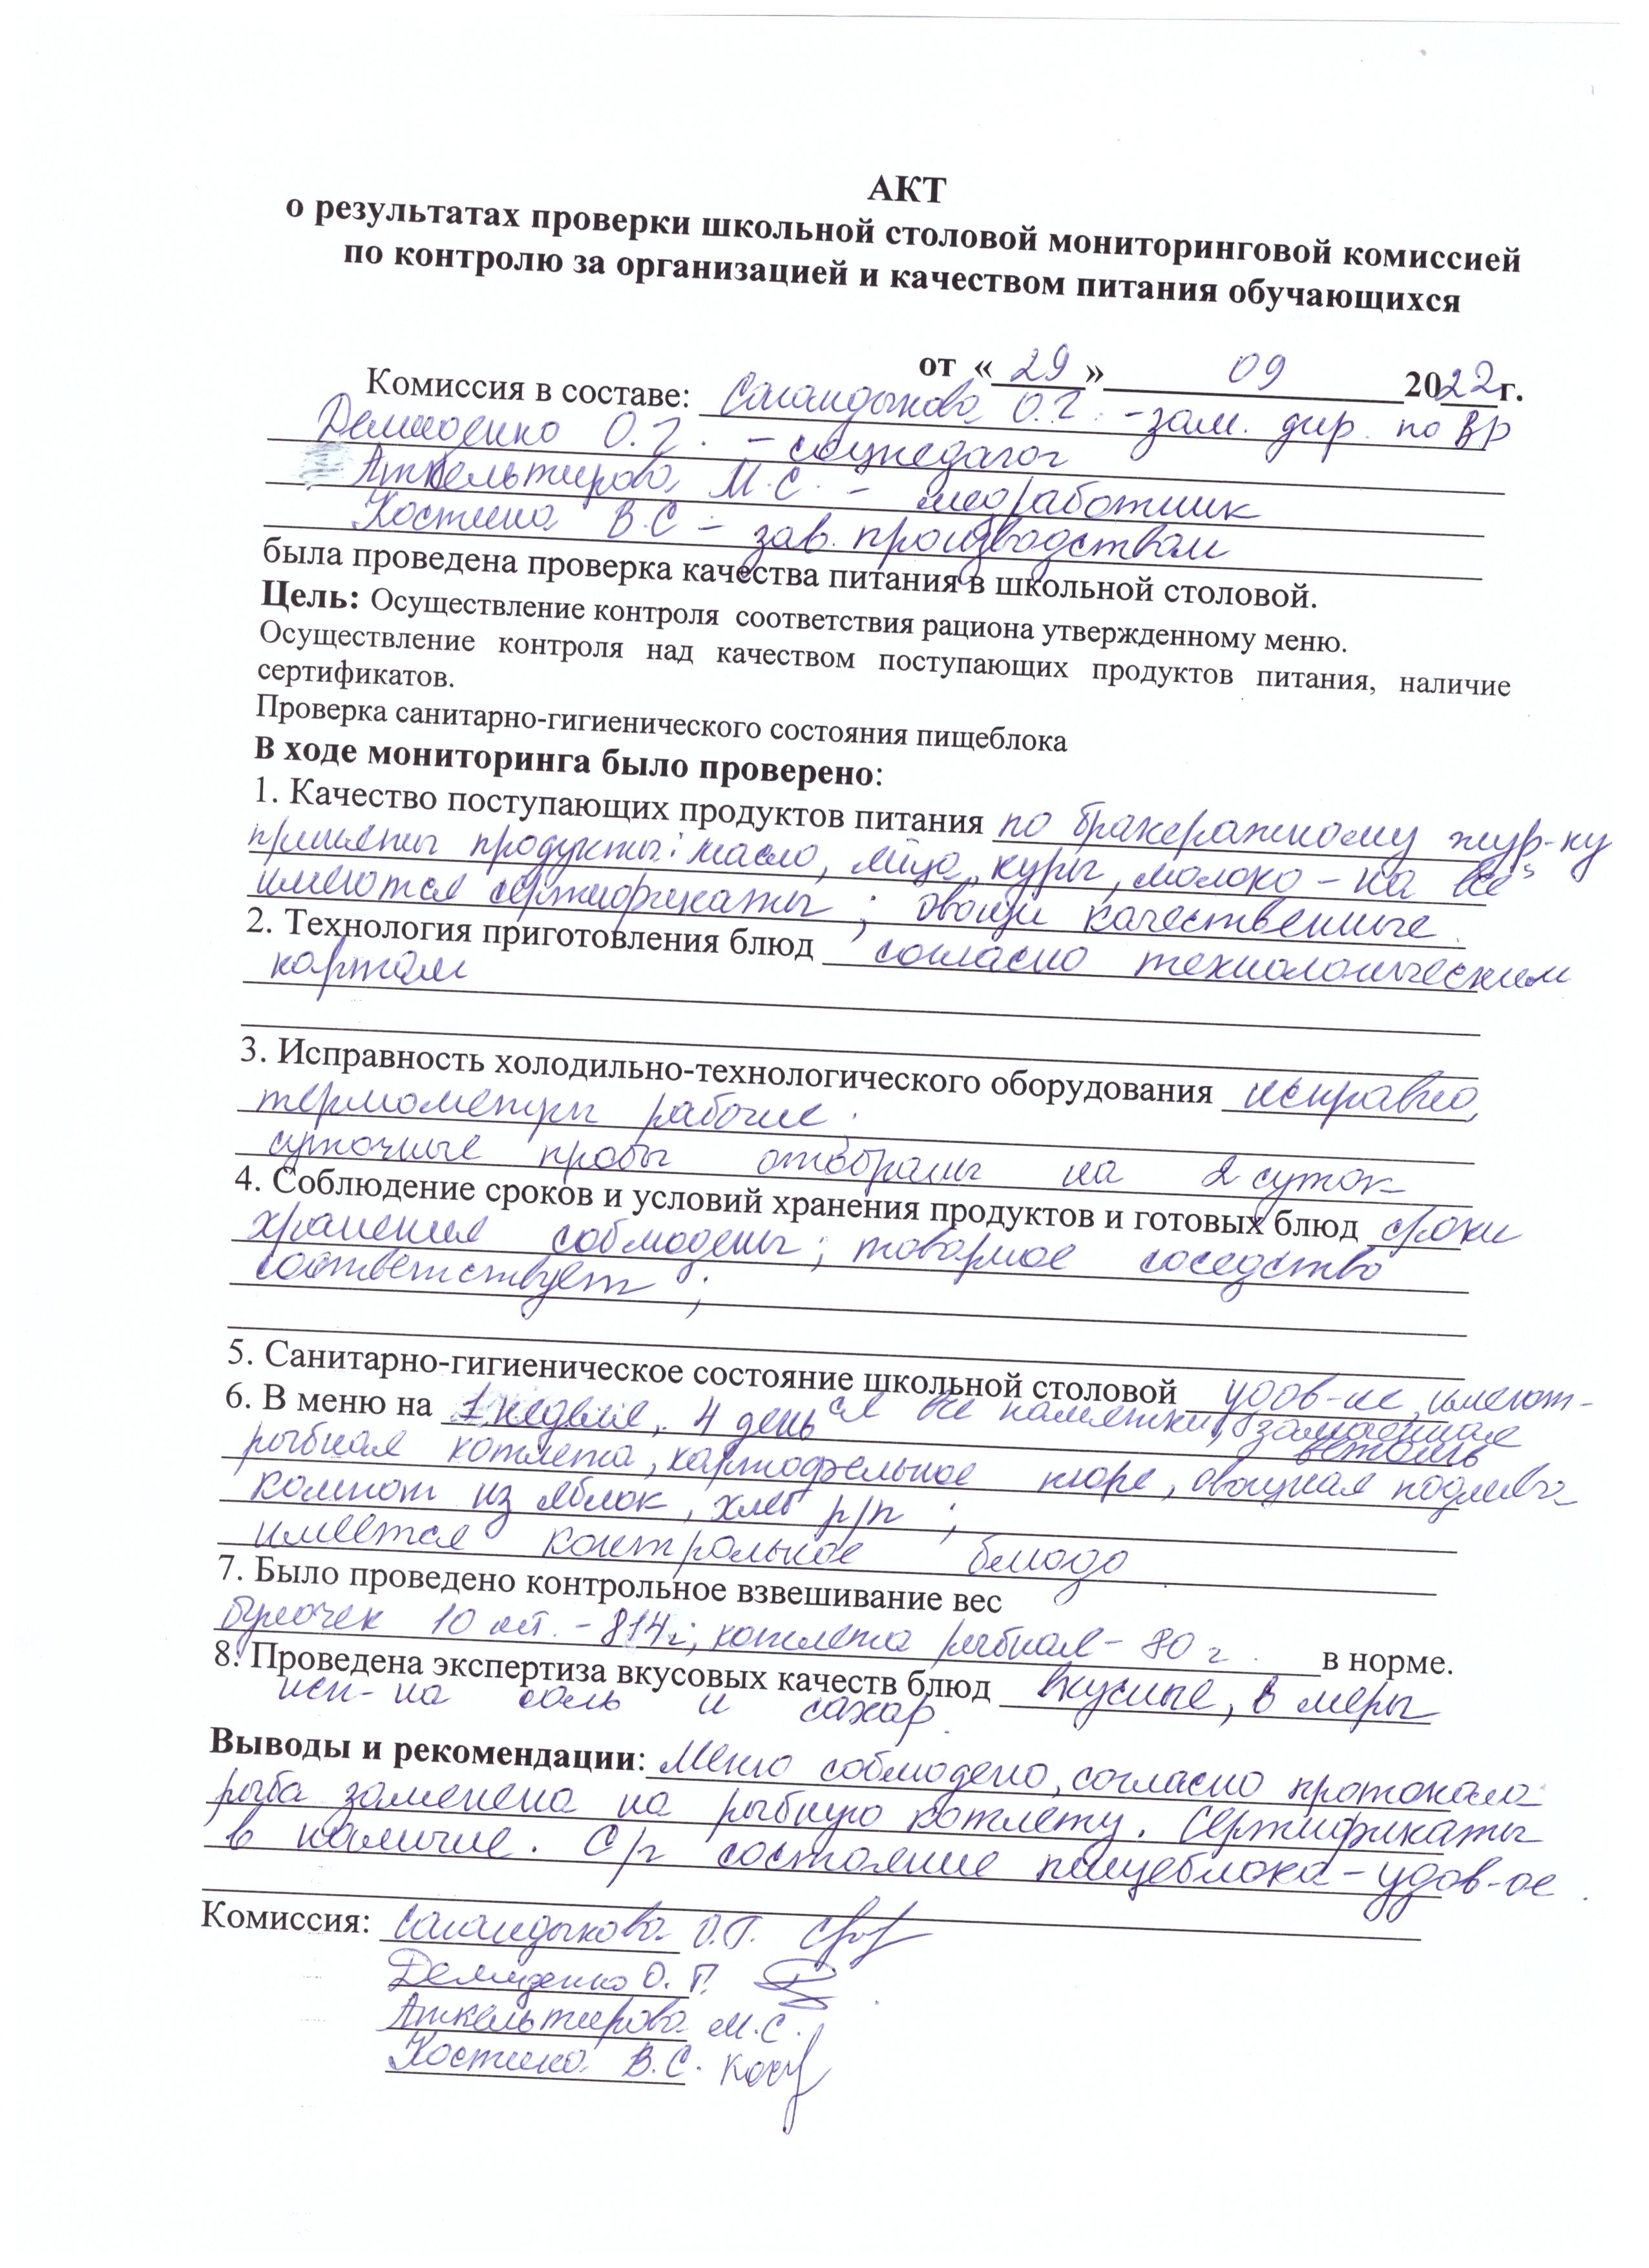 АКТ
о результатах проверки школьной столовой мониторинговой комиссией
по контролю за организацией и качеством питания обучающихся
от «29» 09 2022г.
Комиссия в составе: Сагандыкова О.Г. - зам. дир. по ВР
Демиденко О.Г. - соцпедагог
Аткельтирова М.С. - медработник
Костина В.С - зав. производством
была проведена проверка качества питания в школьной столовой.
Цель: Осуществление контроля соответствия рациона утвержденному меню.
Осуществление контроля над качеством поступающих продуктов питания, наличие
сертификатов.
Проверка санитарно-гигиенического состояния пищеблока
В ходе мониторинга было проверено:
1. Качество поступающих продуктов питания по бракеражному жур-ку
приняты продукты: масло, яйцо, куры, молоко - на все
имеются сертификаты; овощи качественные.
2. Технология приготовления блюд согласно технологическим
картам
3. Исправность холодильно-технологического оборудования исправно,
термометры рабочие;
суточные пробы отобраны на 2 суток
4. Соблюдение сроков и условий хранения продуктов и готовых блюд сроки
хранения соблюдены; товарное соседство
соответствует;
5. Санитарно-гигиеническое состояние школьной столовой удов-ое, имеют-
ся все памятки, замоченная
ветошь
6. В меню на 1 неделя, 4 день
рыбная котлета, картофельное пюре, овощная подлива
компот из яблок, хлеб р/п;
имеется контрольное блюдо
7. Было проведено контрольное взвешивание вес
булочек 10 шт. - 814г; котлета рыбная - 80 г. в норме.
8. Проведена экспертиза вкусовых качеств блюд вкусные, в меры
исп-на соль и сахар.
Выводы и рекомендации: Меню соблюдено, согласно протокола
рыба заменена на рыбную котлету. Сертификаты
в наличие. С/г состояние пищеблока - удов-ое.
Комиссия: Сагандыкова О.Г.
Демиденко О.Г.
Аткельтирова М.С.
Костина В.С.